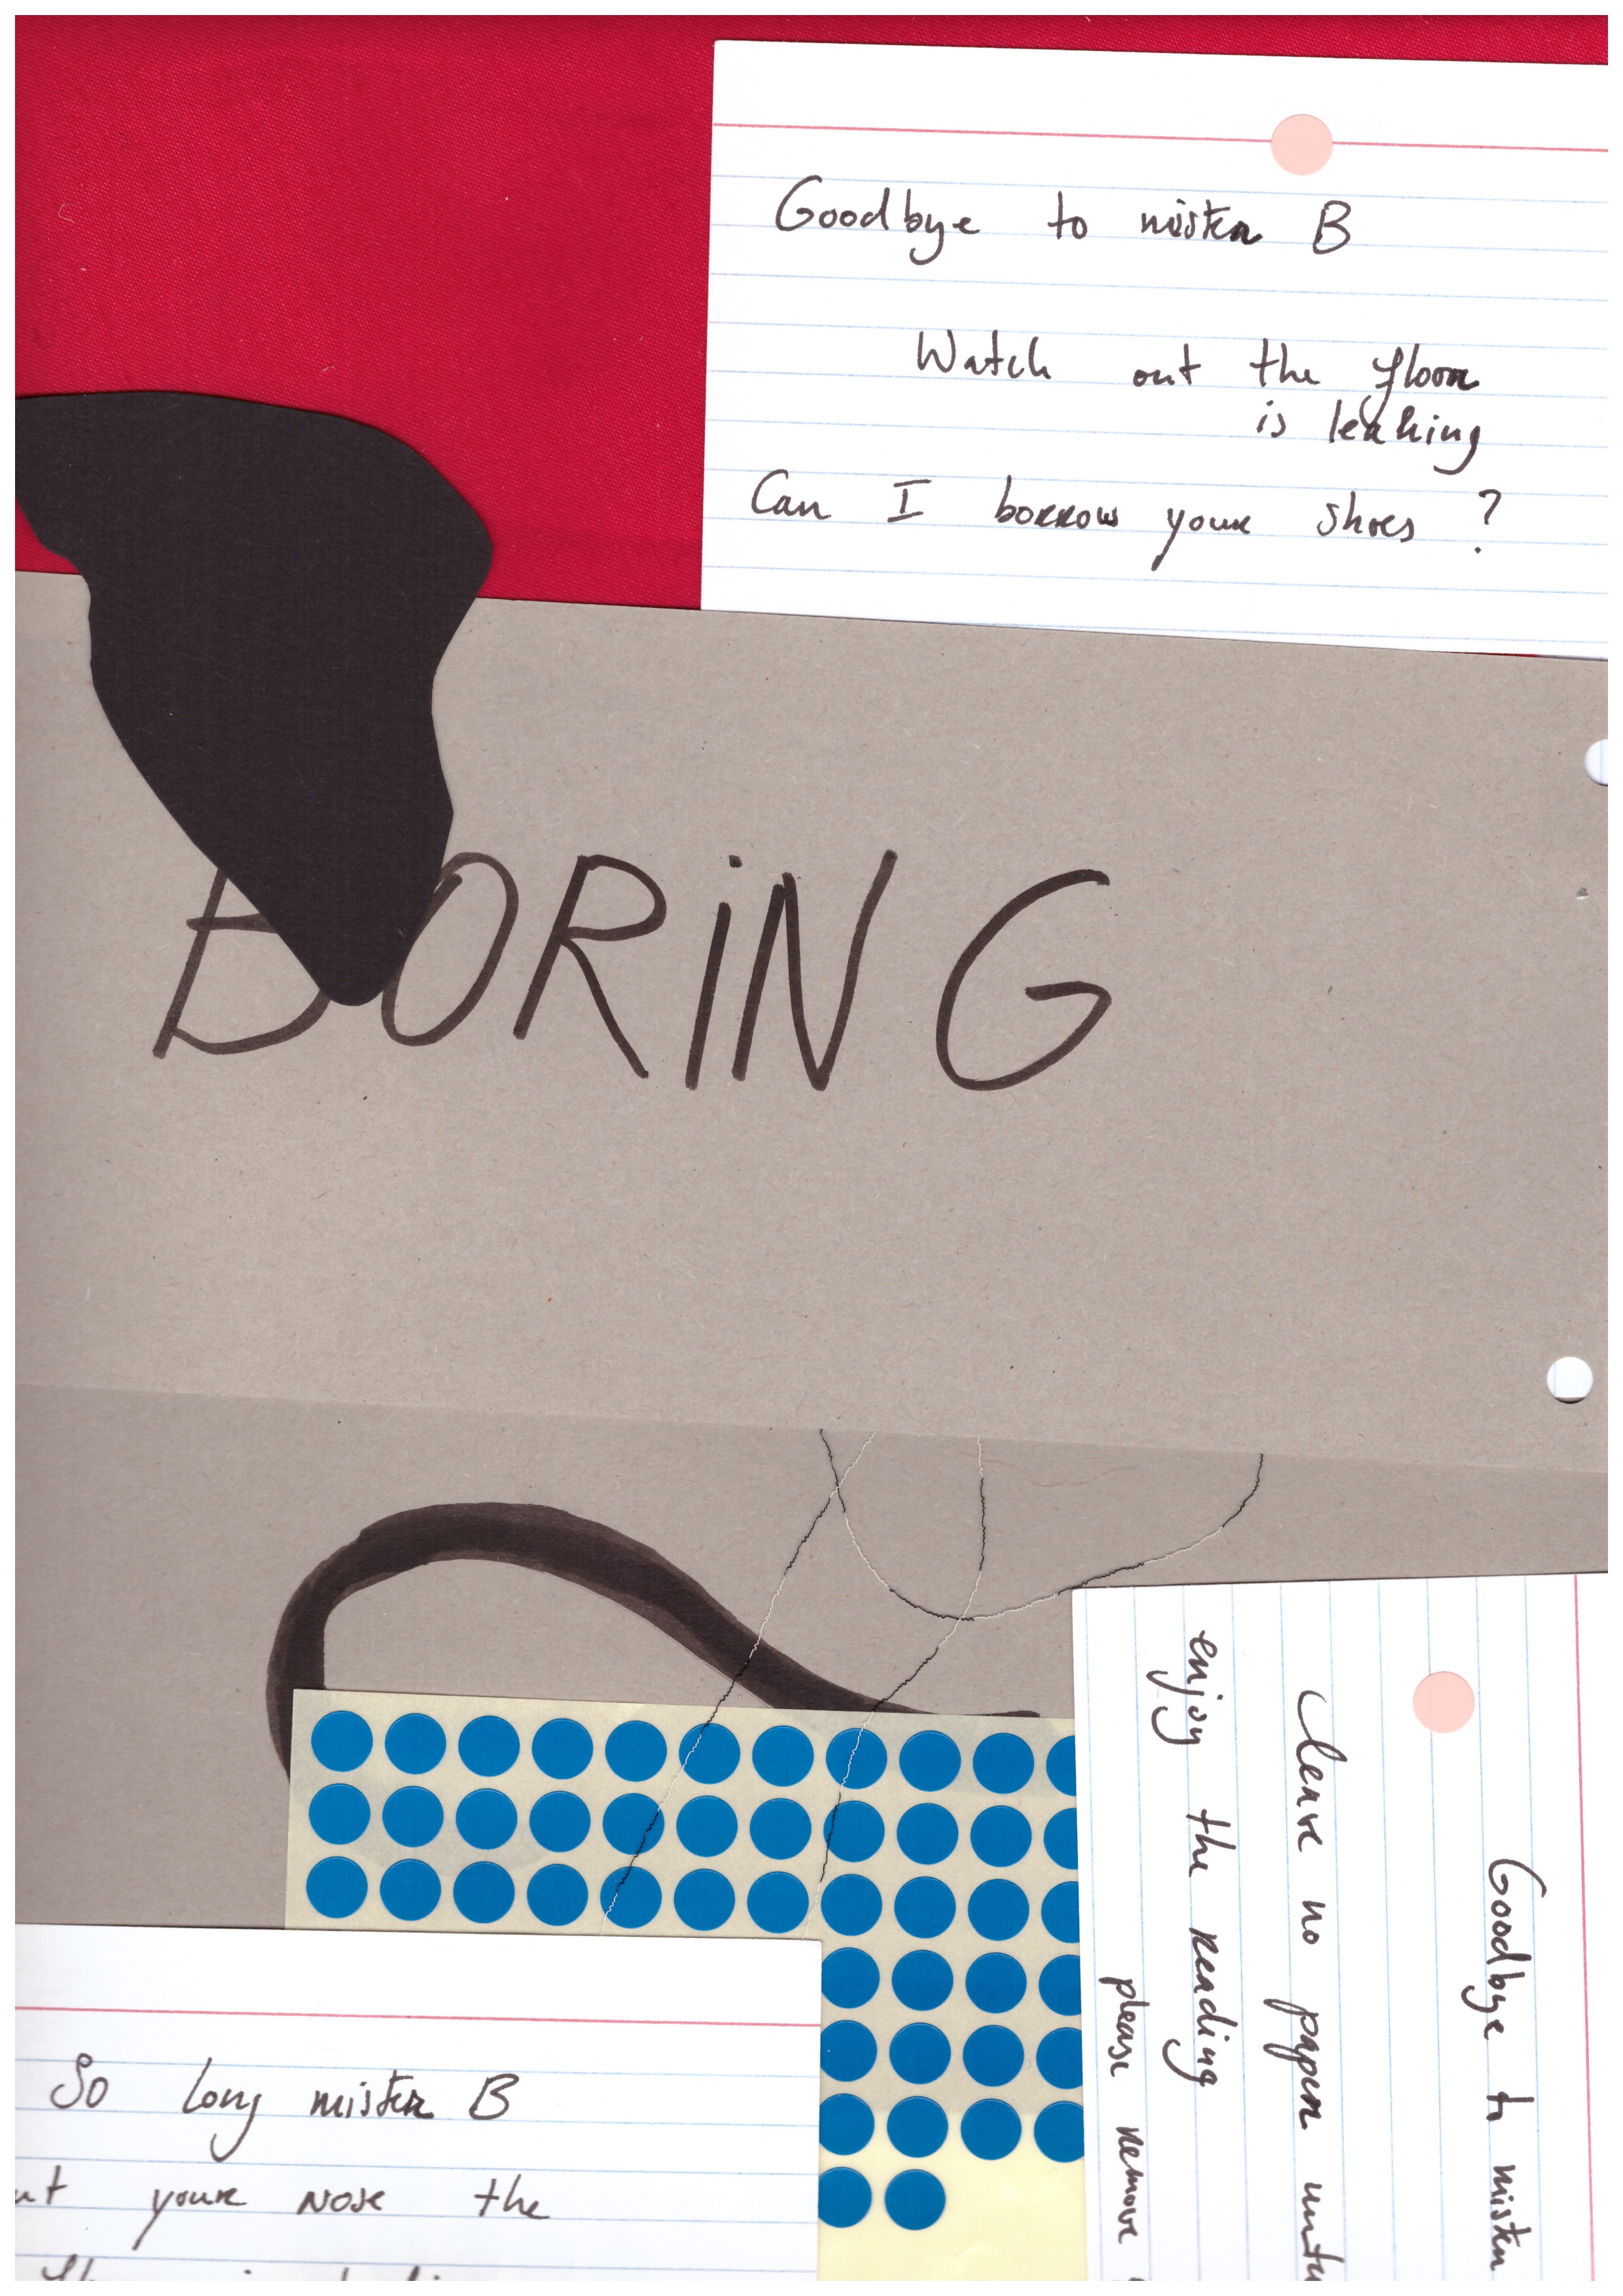 Goodbye to mister B
Watch out the floor
is leaking
Can I borrow your shoes ?
BORiNG
Goodbye to mister
leave no paper
enjoy the reading
please remove
So long mister B
your nose the